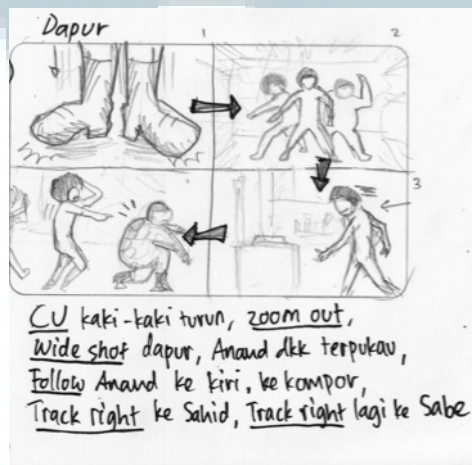 Dapur
1
2
3
CU kaki-kaki turun, zoom out,
Wide shot dapur, Anand dkk terpukau,
Follow Anand ke kiri, ke kompor,
Track right ke Sahid, Track right lagi ke Sabe